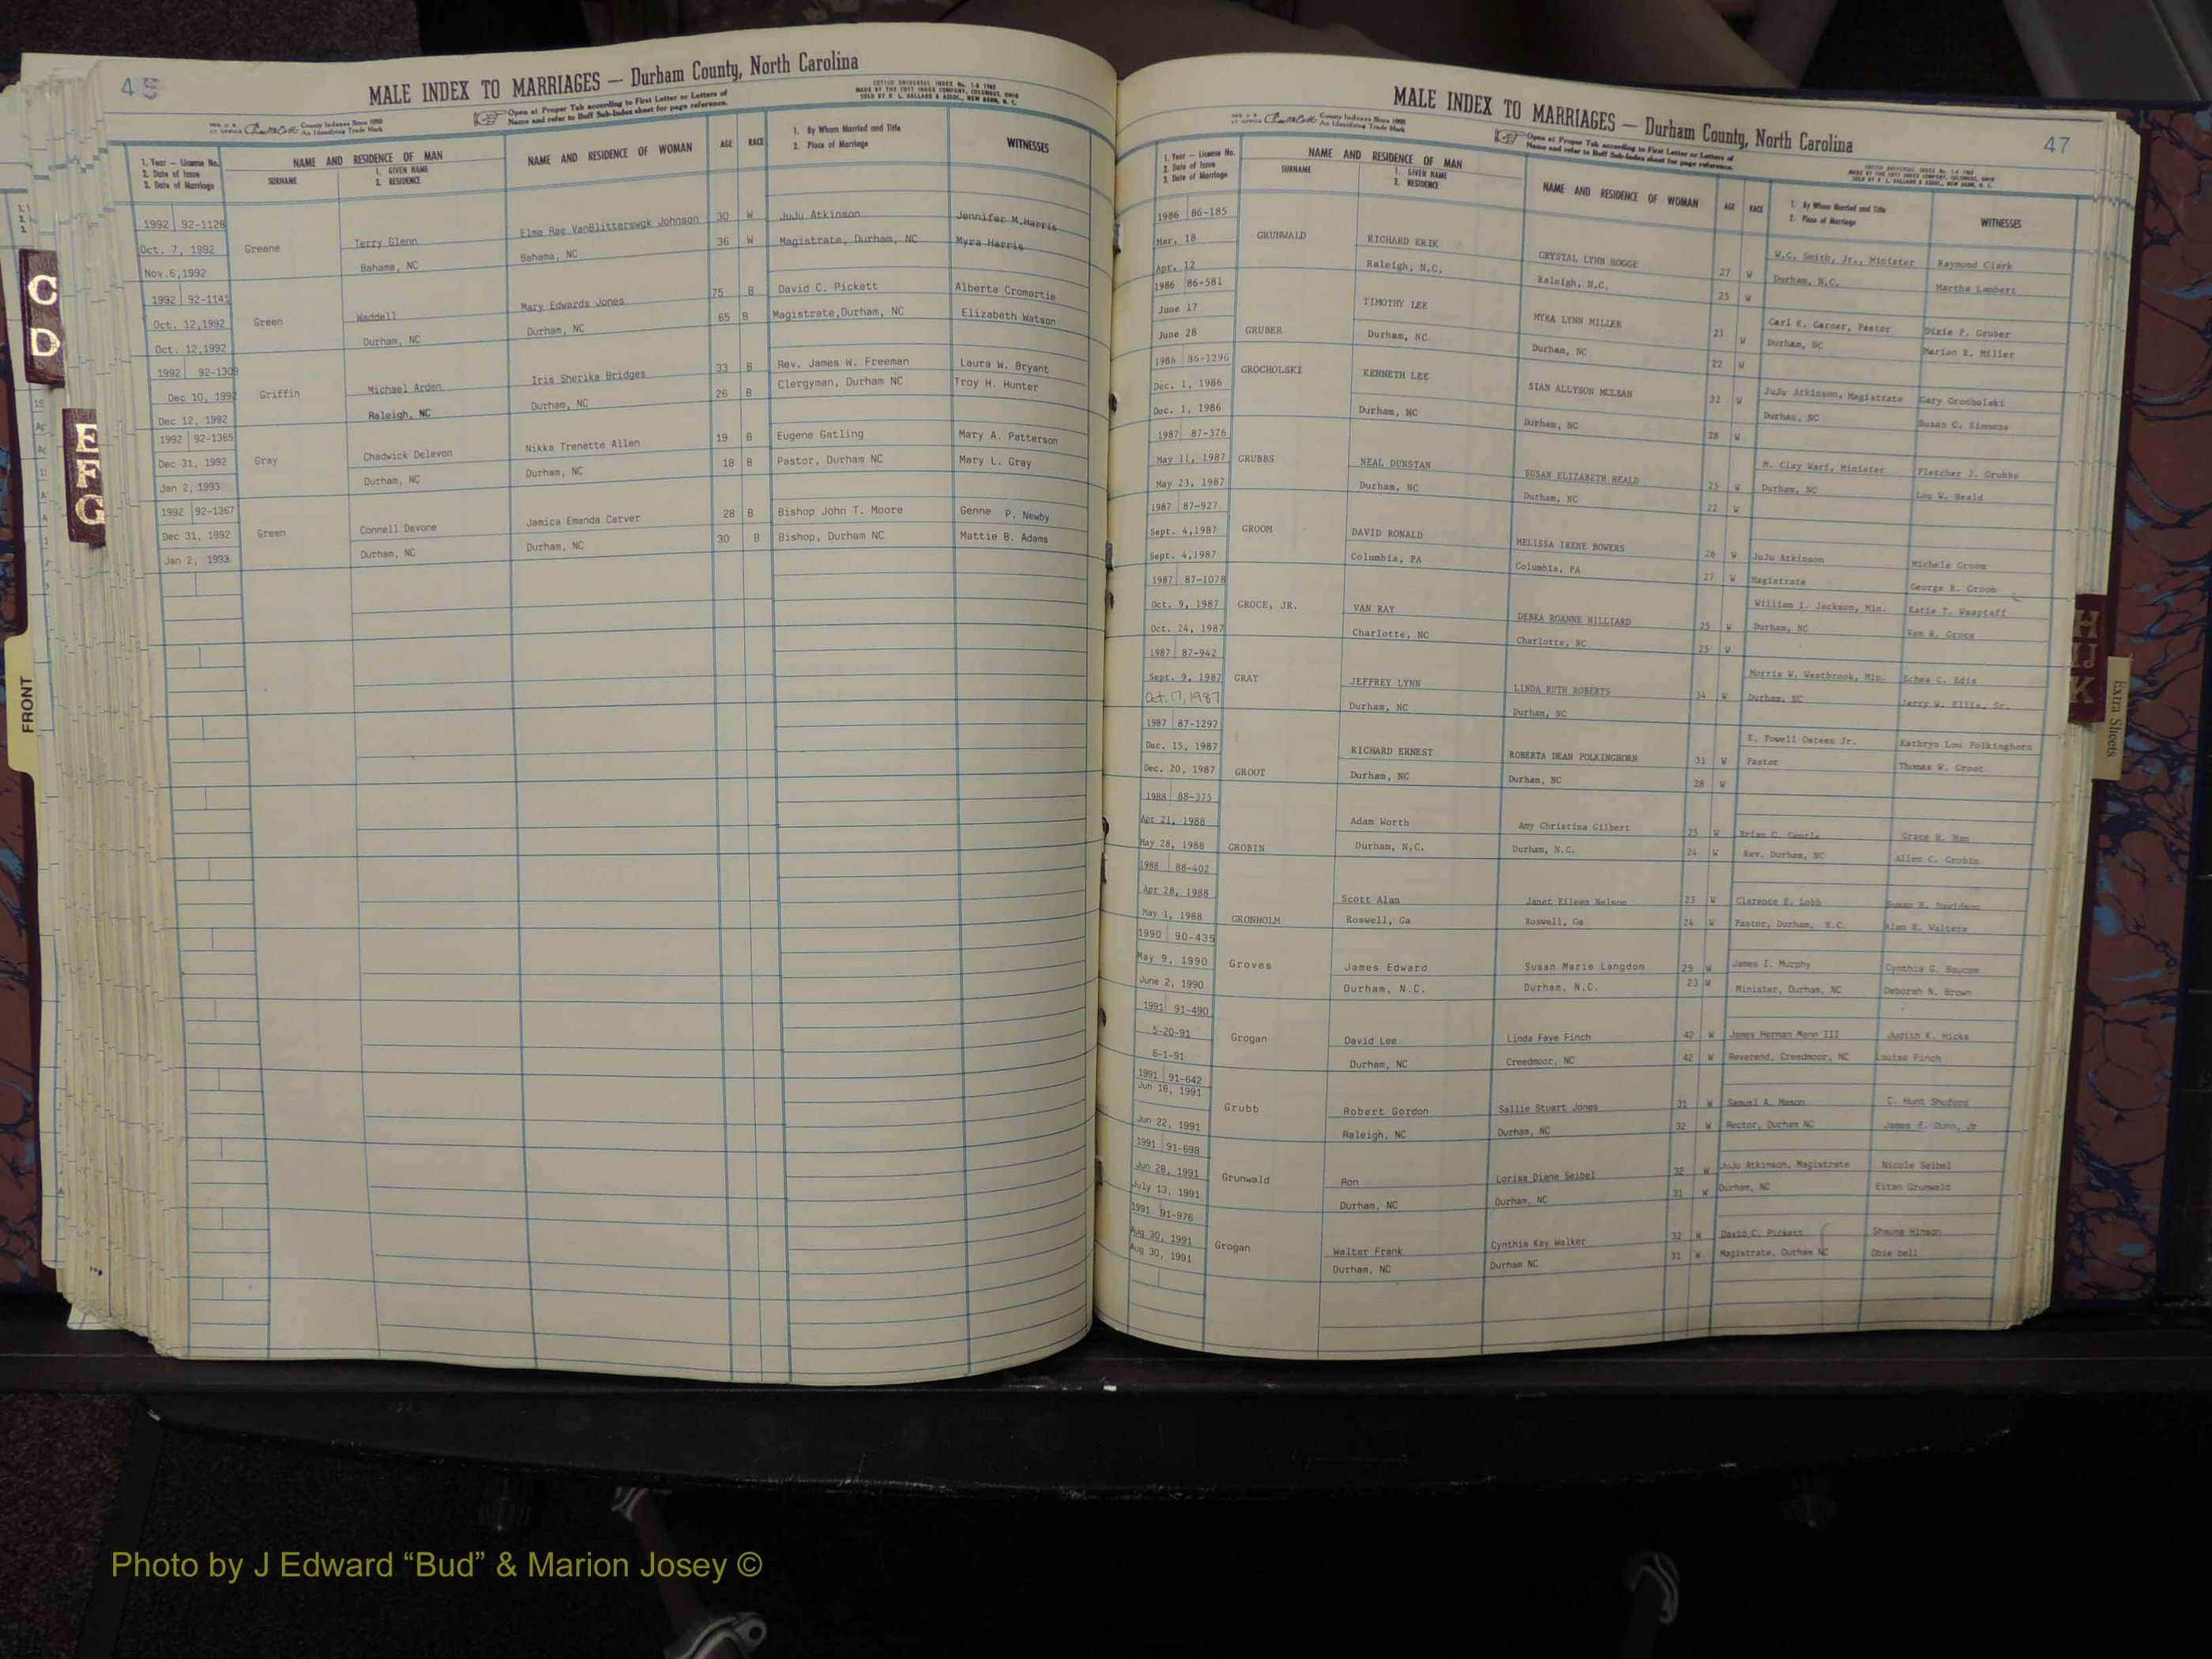 45
MALE INDEX TO MARRIAGES — Durham County, North Carolina
COTTCO UNIVERSAL INDEX No. 1-S 1962
MADE BY THE COTT INDEX COMPANY, COLUMBUS, OHIO
SOLD BY R. L. BALLARD & ASSOC., NEW BERN, N. C.
County Indexes Since 1888
An Identifying Trade Mark
Open at Proper Tab according to First Letter or Letters of
Name and refer to Buff Sub-Index sheet for page reference.
1. Year — License No.
2. Date of Issue
3. Date of Marriage
NAME AND RESIDENCE OF MAN
SURNAME
1. GIVEN NAME
2. RESIDENCE
NAME AND RESIDENCE OF WOMAN
AGE
RACE
1. By Whom Married and Title
2. Place of Marriage
WITNESSES
1992 92-1128
Oct. 7, 1992
Nov.6,1992
Greene
Terry Glenn
Bahama, NC
Elma Rae VanBlitterswgk Johnson
Bahama, NC
30 W
36 W
JuJu Atkinson
Magistrate, Durham, NC
Jennifer M.Harris
Myra Harris
1992 92-1141
Oct. 12,1992
Oct. 12,1992
Green
Waddell
Durham, NC
Mary Edwards Jones
Durham, NC
75 B
65 B
David C. Pickett
Magistrate,Durham, NC
Alberta Cromartie
Elizabeth Watson
1992 92-1309
Dec 10, 1992
Dec 12, 1992
Griffin
Michael Arden
Raleigh, NC
Iris Sherika Bridges
Durham, NC
33 B
26 B
Rev. James W. Freeman
Clergyman, Durham NC
Laura W. Bryant
Troy H. Hunter
1992 92-1365
Dec 31, 1992
Jan 2, 1993
Gray
Chadwick Delevon
Durham, NC
Nikka Trenette Allen
Durham, NC
19 B
18 B
Eugene Gatling
Pastor, Durham NC
Mary A. Patterson
Mary L. Gray
1992 92-1367
Dec 31, 1992
Jan 2, 1993
Green
Connell Devone
Durham, NC
Jamica Emanda Carver
Durham, NC
28 B
30 B
Bishop John T. Moore
Bishop, Durham NC
Genne P. Newby
Mattie B. Adams
C
D
E
F
G
FRONT
MALE INDEX TO MARRIAGES — Durham County, North Carolina
47
County Indexes Since 1888
An Identifying Trade Mark
Open at Proper Tab according to First Letter or Letters of
Name and refer to Buff Sub-Index sheet for page reference.
COTTCO UNIVERSAL INDEX No. 1-S 1962
MADE BY THE COTT INDEX COMPANY, COLUMBUS, OHIO
SOLD BY R. L. BALLARD & ASSOC., NEW BERN, N. C.
1. Year — License No.
2. Date of Issue
3. Date of Marriage
NAME AND RESIDENCE OF MAN
SURNAME
1. GIVEN NAME
2. RESIDENCE
NAME AND RESIDENCE OF WOMAN
AGE
RACE
1. By Whom Married and Title
2. Place of Marriage
WITNESSES
1986 86-185
Mar. 18
Apr. 12
GRUNWALD
RICHARD ERIK
Raleigh, N.C.
CRYSTAL LYNN HOGGE
Raleigh, N.C.
27 W
25 W
W.C. Smith, Jr., Minister
Durham, N.C.
Raymond Clark
Martha Lambert
1986 86-581
June 17
June 28
GRUBER
TIMOTHY LEE
Durham, NC
MYRA LYNN MILLER
Durham, NC
21 W
22 W
Carl K. Garner, Pastor
Durham, NC
Dixie P. Gruber
Marion E. Miller
1986 86-1296
Dec. 1, 1986
Dec. 1, 1986
GROCHOLSKI
KENNETH LEE
Durham, NC
SIAN ALLYSON MCLEAN
Durham, NC
32 W
28 W
JuJu Atkinson, Magistrate
Durham, NC
Gary Grocholski
Susan C. Simmons
1987 87-376
May 11, 1987
May 23, 1987
GRUBBS
NEAL DUNSTAN
Durham, NC
SUSAN ELIZABETH HEALD
Durham, NC
25 W
22 W
M. Clay Warf, Minister
Durham, NC
Fletcher J. Grubbs
Lou W. Heald
1987 87-927
Sept. 4,1987
Sept. 4,1987
GROOM
DAVID RONALD
Columbia, PA
MELISSA IRENE BOWERS
Columbia, PA
26 W
27 W
JuJu Atkinson
Magistrate
Michele Groom
George R. Groom
1987 87-1078
Oct. 9, 1987
Oct. 24, 1987
GROCE, JR.
VAN RAY
Charlotte, NC
DEBRA ROANNE HILLIARD
Charlotte, NC
25 W
25 W
William I. Jackson, Min.
Durham, NC
Katie T. Wagstaff
Van R. Groce
1987 87-942
Sept. 9, 1987
Oct. 17, 1987
GRAY
JEFFREY LYNN
Durham, NC
LINDA RUTH ROBERTS
Durham, NC
34 W
Morris W. Westbrook, Min.
Durham, NC
Echea C. Edis
Jerry W. Ellis, Sr.
1987 87-1297
Dec. 15, 1987
Dec. 20, 1987
GROOT
RICHARD ERNEST
Durham, NC
ROBERTA DEAN POLKINGHORN
Durham, NC
31 W
28 W
E. Powell Osteen Jr.
Pastor
Kathryn Lou Polkinghorn
Thomas W. Groot
1988 88-375
Apr 21, 1988
May 28, 1988
GROBIN
Adam Worth
Durham, N.C.
Amy Christina Gilbert
Durham, N.C.
25 W
24 W
Brian C. Gentle
Rev. Durham, NC
Grace H. Han
Allen C. Grobin
1988 88-402
Apr 28, 1988
May 1, 1988
GRONHOLM
Scott Alan
Roswell, Ga
Janet Eileen Nelson
Roswell, Ga
23 W
24 W
Clarence E. Lobb
Pastor, Durham, N.C.
Susan H. Davidson
Alan E. Walters
1990 90-435
May 9, 1990
June 2, 1990
Groves
James Edward
Durham, N.C.
Susan Marie Langdon
Durham, N.C.
29 W
23 W
James I. Murphy
Minister, Durham, NC
Cynthia G. Baucom
Deborah N. Brown
1991 91-490
5-20-91
6-1-91
Grogan
David Lee
Durham, NC
Linda Faye Finch
Creedmoor, NC
42 W
42 W
James Herman Mann III
Reverend, Creedmoor, NC
Judith K. Hicks
Louise Finch
1991 91-642
Jun 18, 1991
Jun 22, 1991
Grubb
Robert Gordon
Raleigh, NC
Sallie Stuart Jones
Durham, NC
31 W
32 W
Samuel A. Mason
Rector, Durham NC
C. Hunt Shuford
James E. Dunn, Jr
1991 91-698
Jun 28, 1991
July 13, 1991
Grunwald
Ron
Durham, NC
Lorisa Diane Seibel
Durham, NC
32 W
31 W
JuJu Atkinson, Magistrate
Durham, NC
Nicole Seibel
Eitan Grunwald
1991 91-976
Aug 30, 1991
Aug 30, 1991
Grogan
Walter Frank
Durham, NC
Cynthia Kay Walker
Durham NC
32 W
31 W
David C. Pickett
Magistrate, Durham NC
Shauna Hinson
Obie bell
H
IJ
K
Extra Sheets
Photo by J Edward “Bud” & Marion Josey ©